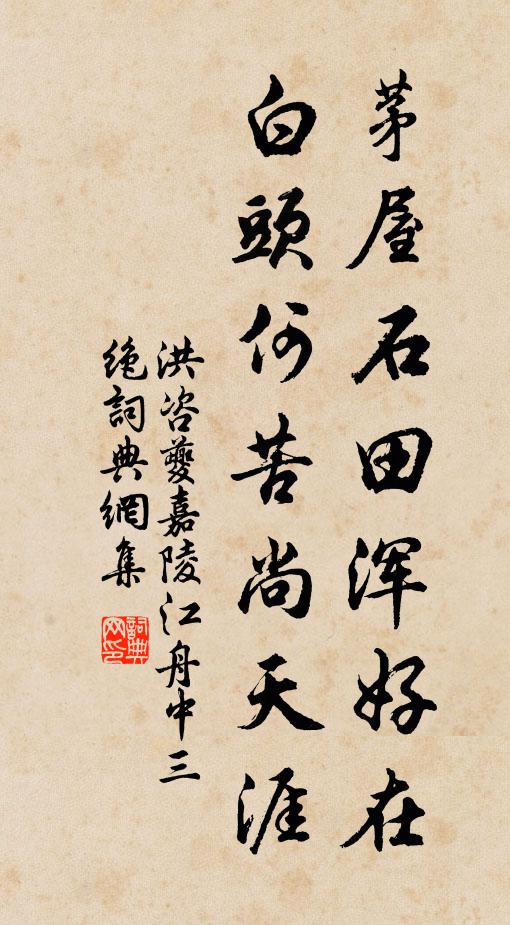 茅屋石田浑好在
白頭何苦尚天涯
洪咨夔嘉陵江舟中三
絶詞典網集
詞典
网印